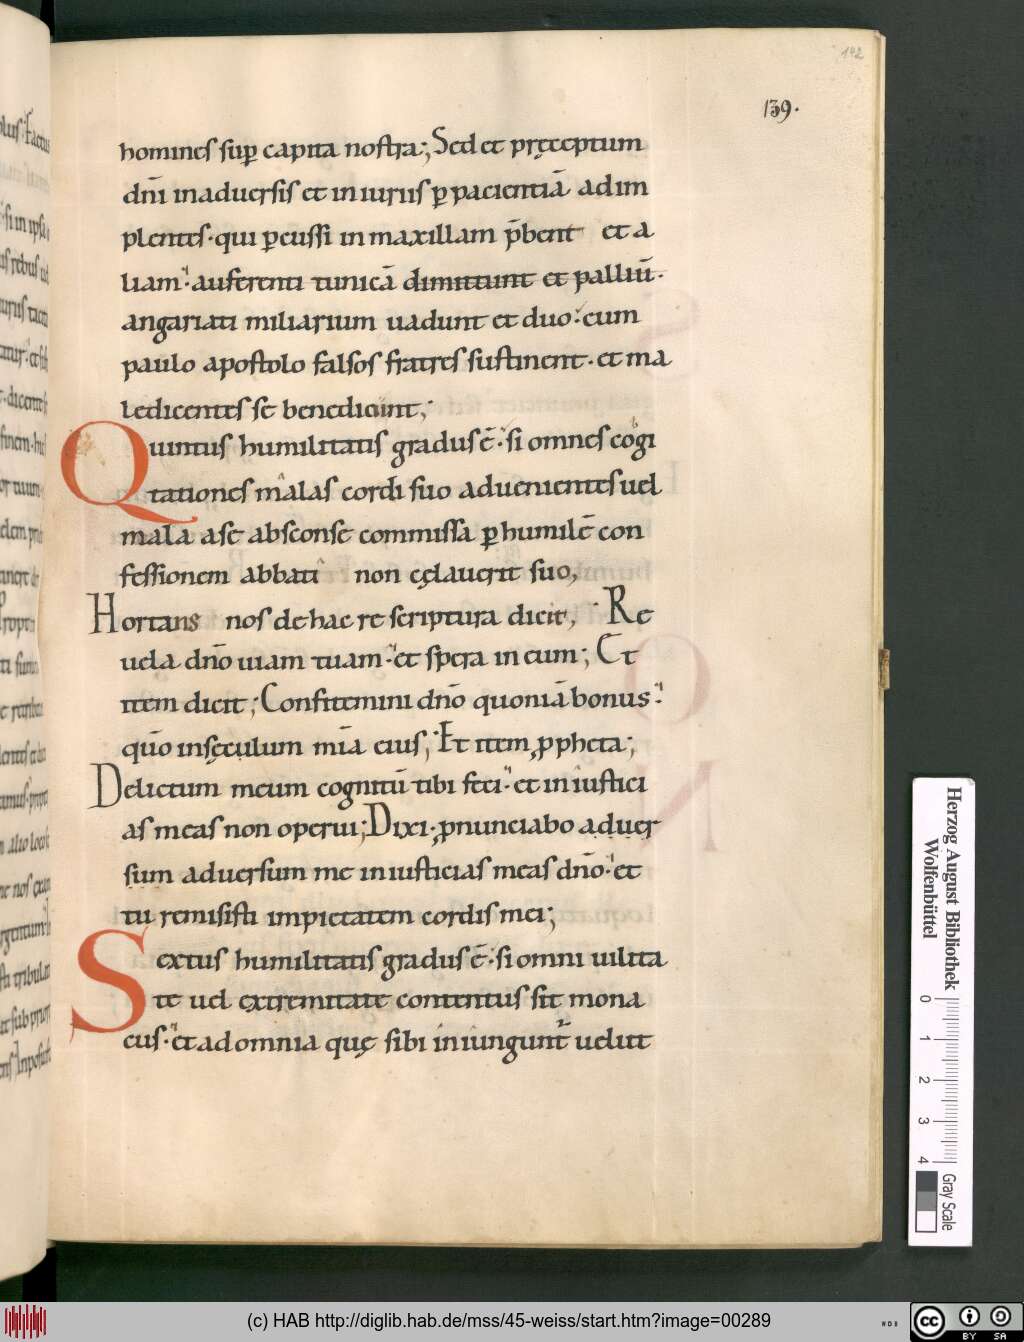 142
139.
homines sup̄ capita nostra; Sed et pręceptum
dn̄i in aduersis et in iuriis p̄ pacientiā adim
plentes. qui p̄cussi in maxillam p̄bent et a
liam. auferenti tunicā dimittunt et palliū.
angariati miliarium uadunt et duo. cum
paulo apostolo falsos fratres sustinent. et ma
ledicentes se benedicunt;
Quintus humilitatis gradus ē. si omnes cogi
tationes malas cordi suo aduenientes uel
mala a se absconse commissa p̄ humilē con
fessionem abbati non cęlauerit suo,
Hortans nos de hac re scriptura dicit, Re
uela dn̄o uiam tuam. et spera in eum; Et
item dicit; Confitemini dn̄o quoniā bonus.
qūo in sęculum mīa eius; Et item ꝓpheta;
Delictum meum cognitū tibi feci. et iniustici
as meas non operui; Dixi. ꝓnunciabo aduer
sum aduersum me iniusticias meas dn̄o. et
tu remisisti impietatem cordis mei;
Sextus humilitatis gradus ē. si omni uilita
te uel extremitate contentus sit mona
cus. et ad omnia quę sibi iniungunt̄ uelut
Herzog August Bibliothek
Wolfenbüttel
0 1 2 3 4
Gray Scale
(c) HAB http://diglib.hab.de/mss/45-weiss/start.htm?image=00289
cc BY SA